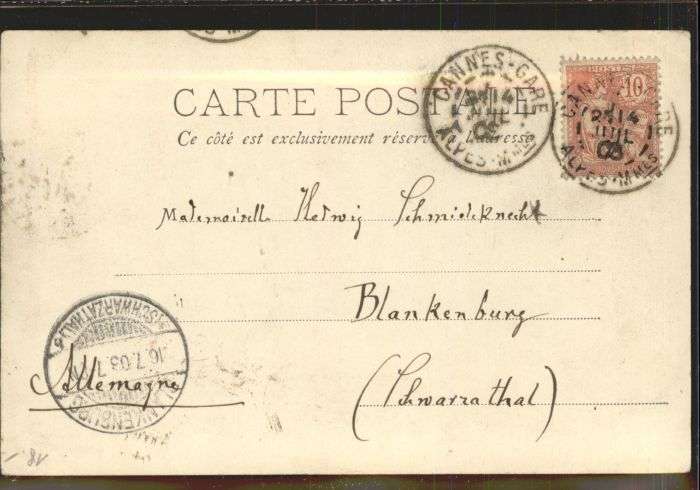 CARTE POSTALE
Ce côté est exclusivement réservé à l'adresse
CANNES-GARE
14
JUIL
03
ALPES-Mmes
10
14
JUIL
03
ALPES-Mmes
Mademoiselle Hedwig Schmiedeknecht
Blankenburg
(Schwarzathal)
Allemagne
BLANKENBURG
(SCHWARZATHAL)
16.7.03.7
18.-